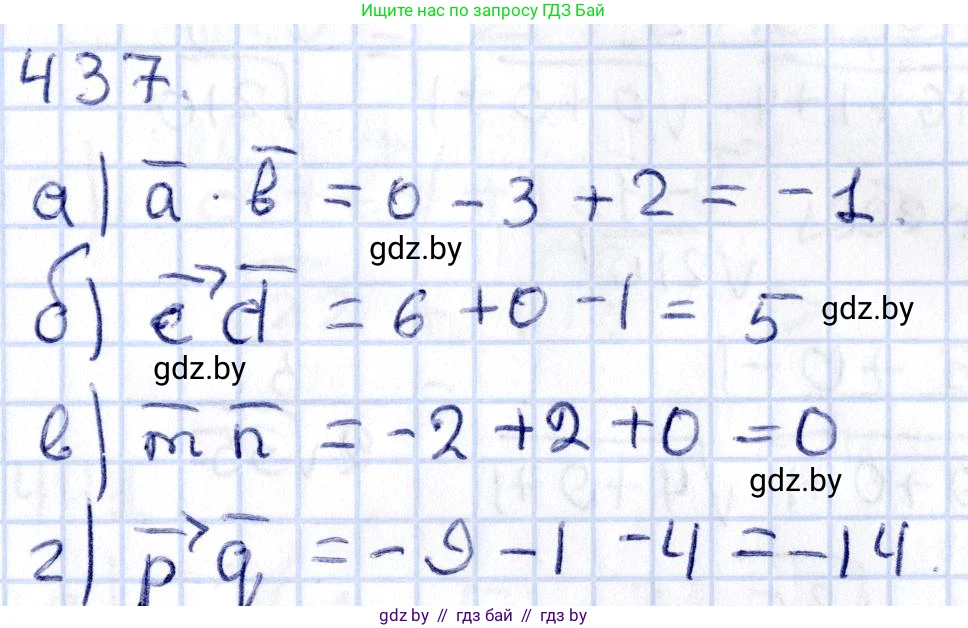 Ищите нас по запросу ГДЗ Бай
437.
а) a̅ · b̅ = 0 - 3 + 2 = -1.
gdz.by
б) c⃗ d̅ = 6 + 0 - 1 = 5
gdz.by
gdz.by
в) m̅ n̅ = -2 + 2 + 0 = 0
gdz.by
г) p⃗ q̅ = -9 - 1 - 4 = -14.
gdz.by // гдз бай // гдз by